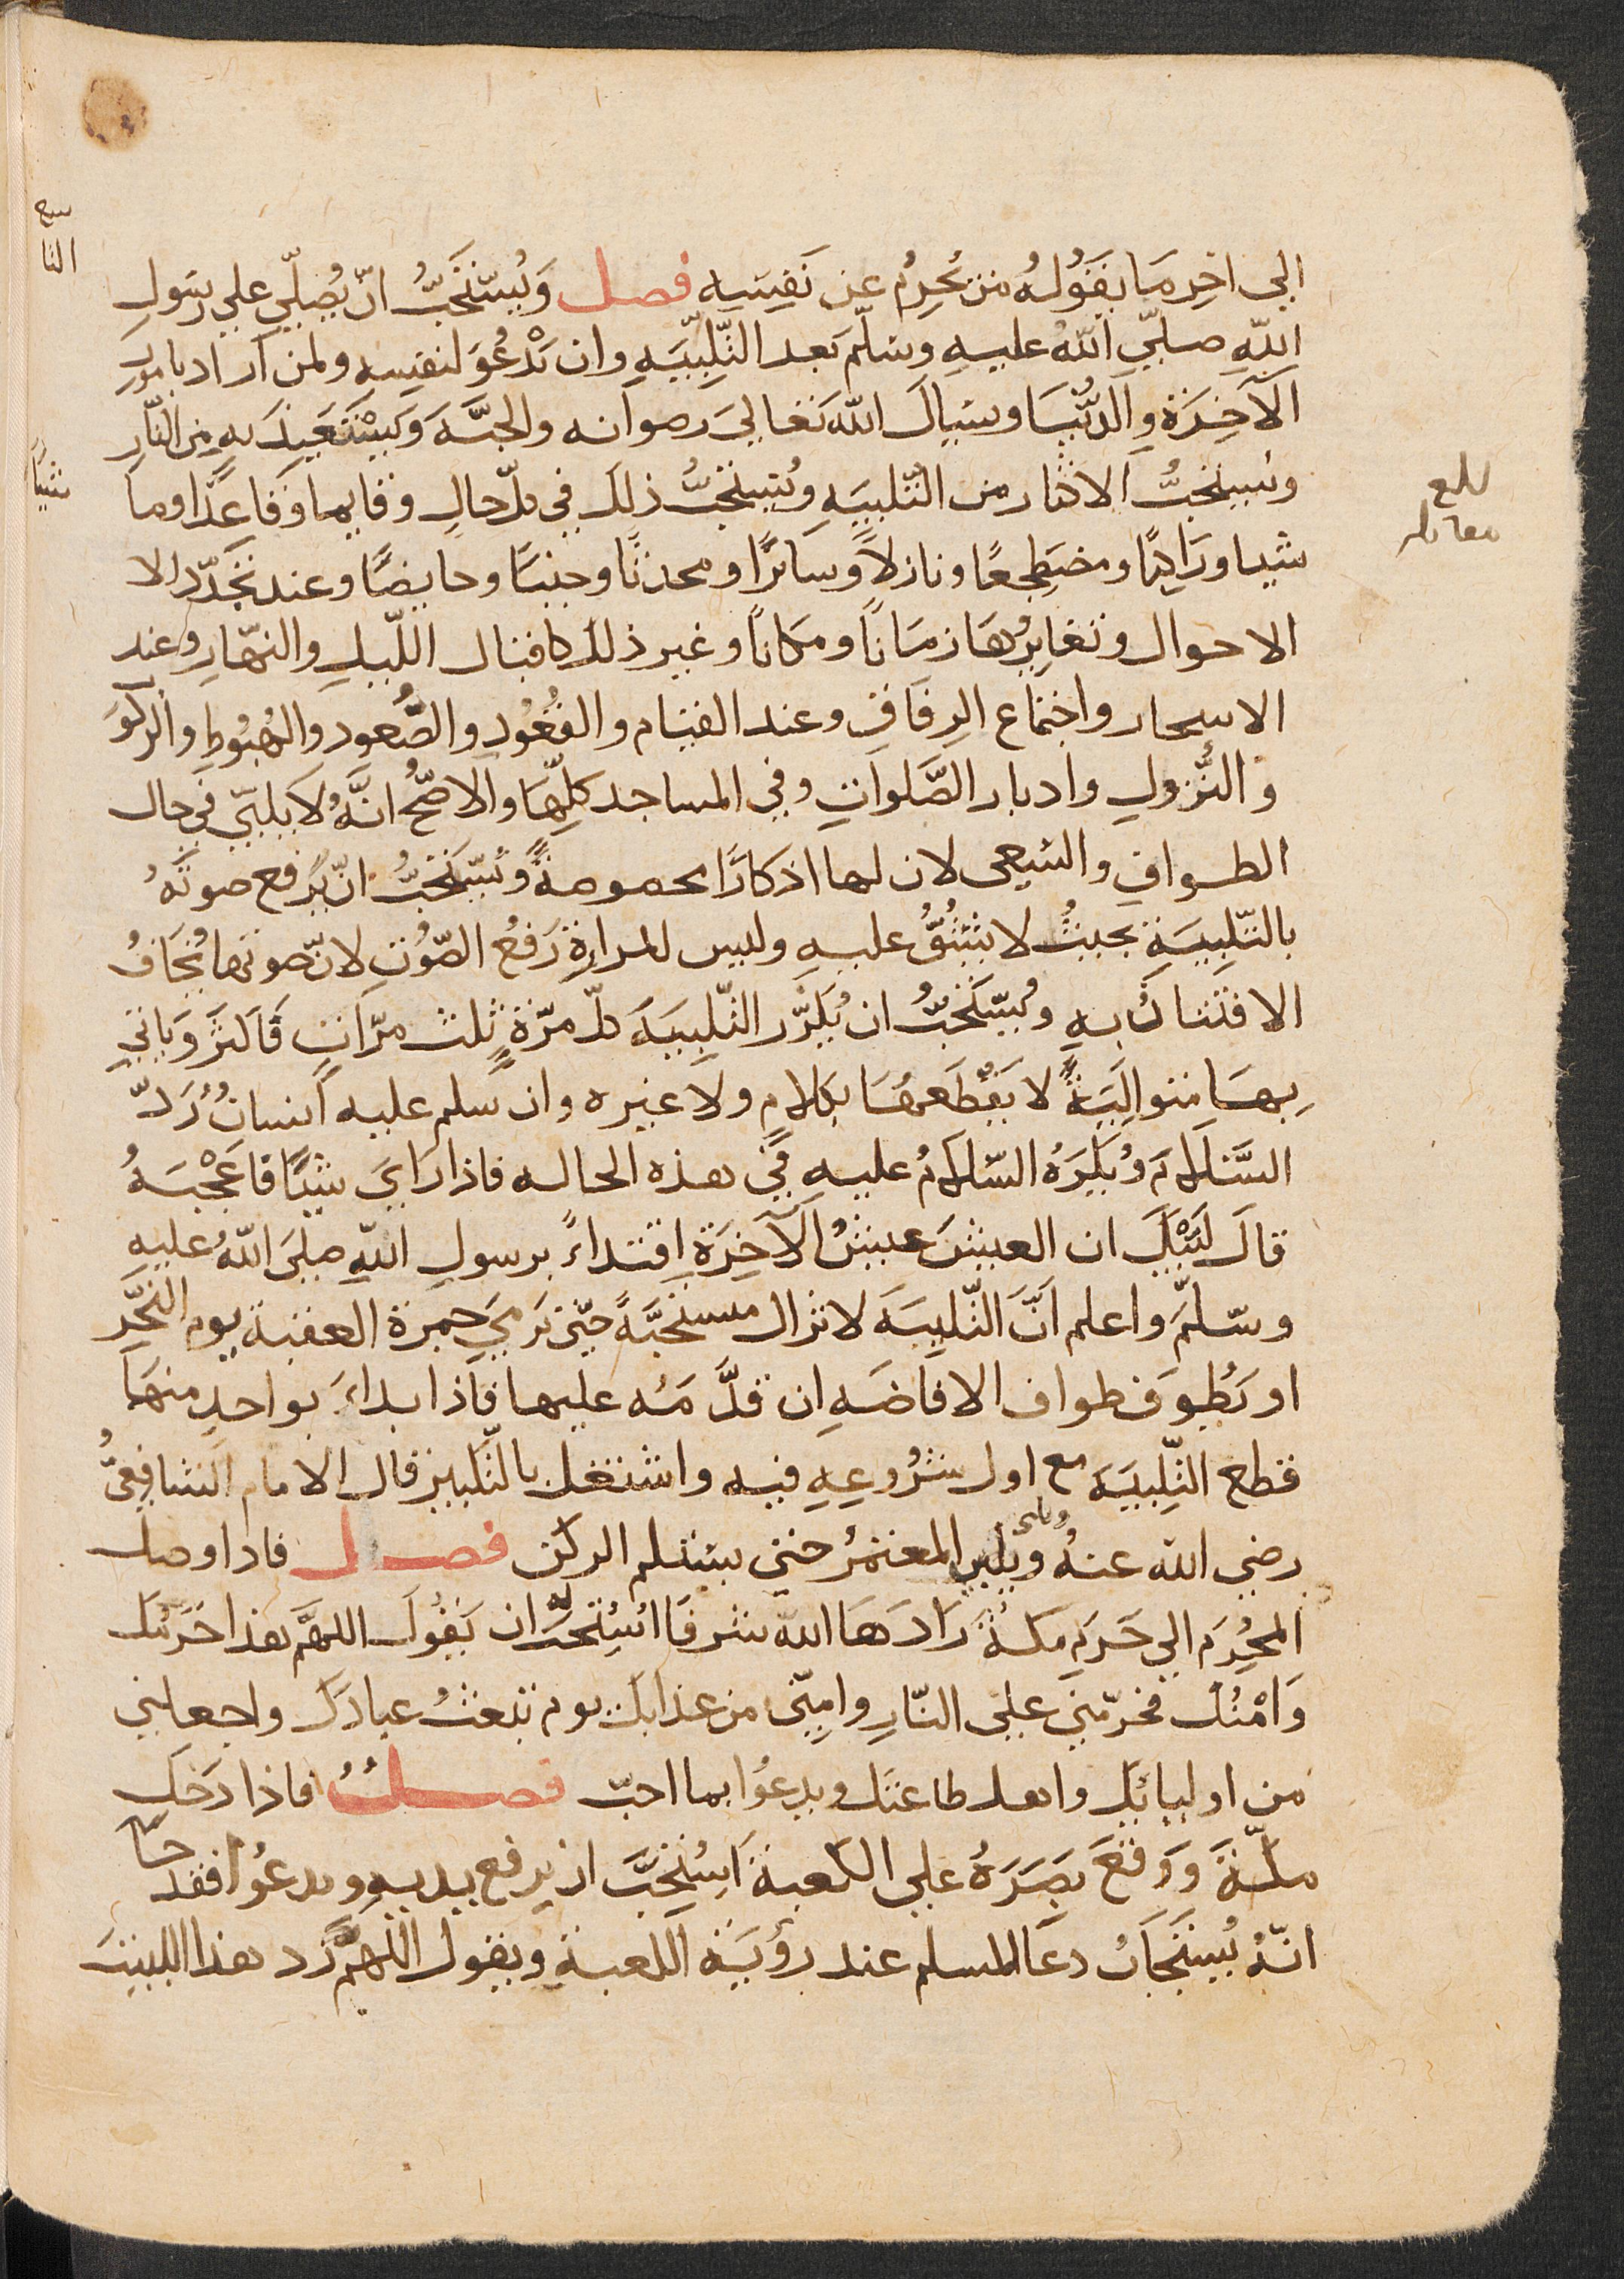 الى اخِرِ مَا يَقُولُهُ من يُحرِمُ عن نَفسِهِ فصل وَيُستَحَبُّ انْ يُصَلّي علي رسَولِ
اللّهِ صلّي اللّهُ عليهِ وسلّم بَعد التّلبيَةِ وان يَدْعُوَ لنفسِهِ ولمن اراد بامورِ
الآخِرَة والدّنيَا ويسَالَ اللّه تَعَالىَ رضوانه والجنَّهَ وَيَسْتَعيذَ بهِ من النّارِ
ويُستحَبُّ الاكثار من التّلبيَةِ ويُستحَبُّ ذلك في كلّ حالٍ وقايما وَقَاعدًا وما
شيا ورَاكبًا ومضطَجعًا ونازلاً وَسَائرًا ومحدثًا وجنبًا وحايضًا وعند تجَدّد الا
الاحوال وتغايُرهَا زمَانًا ومكانًا وغير ذلك كاقبال اللّيلِ والنهّارِ وعند
الاسحار واجتماع الرفَاقِ وعند القيام والقُعُودِ والصُّعود والهُبُوطِ والركُوَ
وَالنُّزولِ وادبار الصَّلواتِ وفي المساجد كلّهَا والاصّحُّ انَّهُ لا يُلبّي في حال
الطوافِ والسَعي لان لها اذكارًا مخصوصةً ويُستَحَبُّ انْ يَرفع صوتَهُ
بالتّلبيَةِ بحيثُ لا يَشُقُّ عليهِ وليس للمراةِ رَفعُ الصَّوْتِ لانّ صوتها يُخَافُ
الافتتانُ بهِ ويُستَحَبُّ ان يُكرّر التّلبيَه كلّ مرّةٍ ثلث مرّاتٍ فَاكثرَ وَياتي
بهَا متواليَةً لا يَقطَعهُا بكلامٍ ولا غيره وان سلم عليه انسانُ رَدّ
السَّلامَ وَيُكرَهُ السَّلامُ عليهِ في هذه الحاله فاذا رَايَ شيًا فاعَجْبَهُ
قالَ لَبَّيْكَ ان العيشَ عيشُ الآخِرَةِ اقتداءً برسولِ اللّهِ صلىَ اللّهُ عليهِ
وسّلمّ واعلم اَنَّ التّلبيَهَ لا تزال مستحَبَّةً حتّي يَرمي جمرَة العقبة يوم النّحَرِ
او يَطوفَ طواف الافاضَهِ ان قدَّمَهُ عليها فاذا بداءَ بواحدٍ منهَا
قطع التّلبيَهَ مع اول شُرُوعِهِ فيه واشتغل بالتّكبير قال الامام الشافعيُّ
رضي الله عنهُ ويلبي المعتمرُ حتي يستلم الركن فصل فاذا وصل
المحُرمِ الي حَرَمِ مكةَ زادَهَا اللّه شرفَا استُحِبَّ له ان يَقُولَ اللهمَّ هذا حَرَمُك
وَامْنُك فحَرّمني على النّارِ وامِنّي من عذابك يوم تبعثُ عبادَك واجعلني
من اوليائك واهل طاعتك ويدعُوا بما احبّ فصلُ فاذا دَخَلَ
مكّةَ وَوَقعَ بَصَرهُ علي الكعبة استُحِبَّ ان يرفع يديهِ ويدعُوا فقد جَا
انّهُ يُستجَابُ دعَا المسلم عند رؤيَةِ الكعبةِ ويقول اللهُمّ زد هذا البيت
بلغ
مقابله